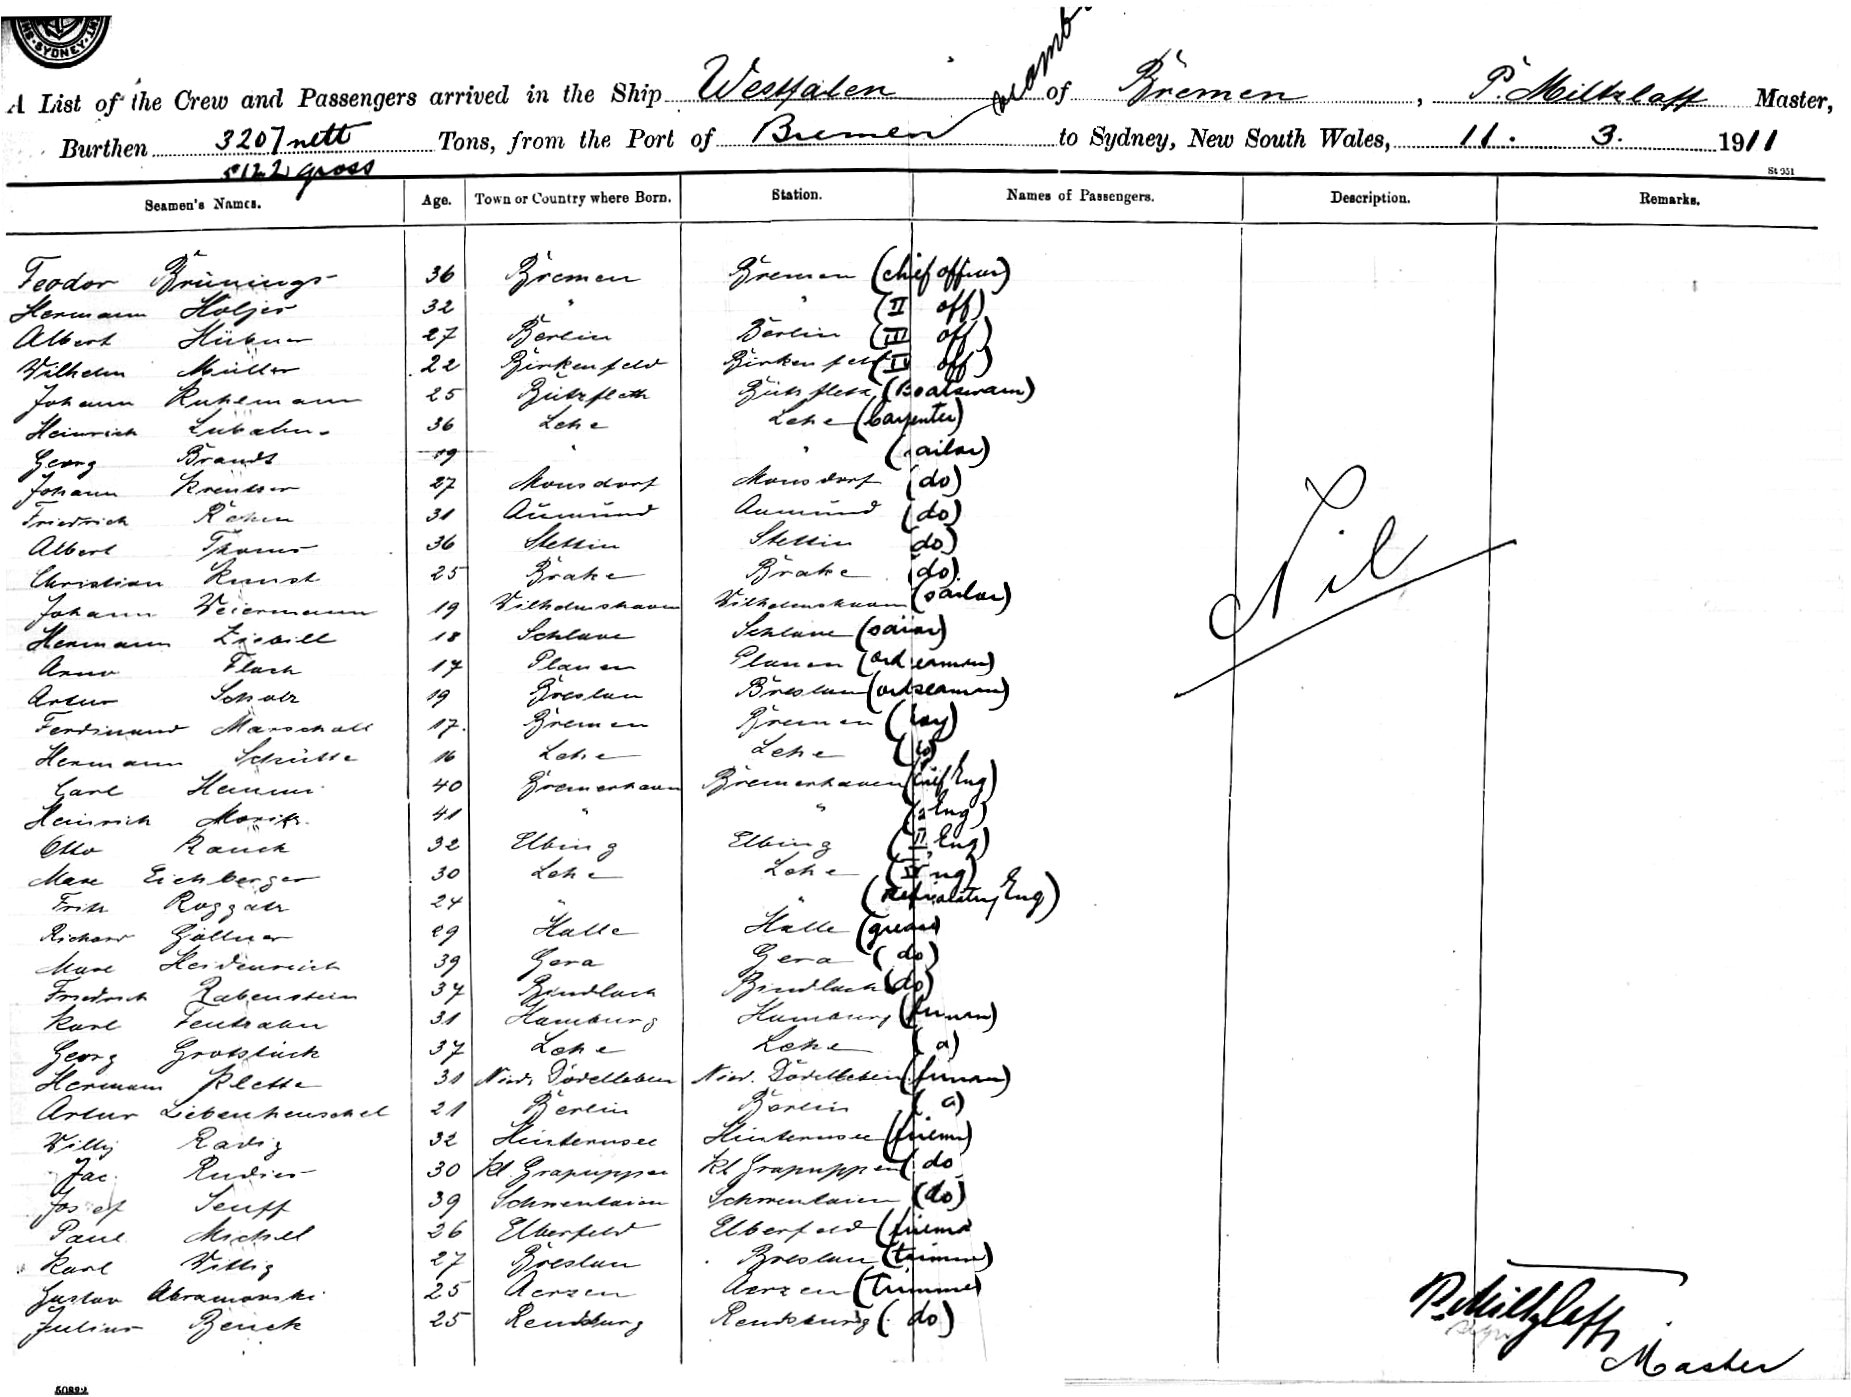 SYDNEY
A List of the Crew and Passengers arrived in the Ship Westfalen of Bremen, P. Miltzlaff Master,
Burthen 3207 nett Tons, from the Port of Bremen to Sydney, New South Wales, 11. 3. 1911
5122 gross
St 951
Seamen's Names. Age. Town or Country where Born. Station. Names of Passengers. Description. Remarks.
Teodor Brünings 36 Bremen Bremen (chief officer)
Hermann Holjes 32 " " (II off)
Albert Hübner 27 Berlin Berlin (III off)
Wilhelm Müller 22 Birkenfeld Birkenfeld (IV off)
Johann Kuhlmann 25 Bützfleth Bützfleth (Boatswain)
Heinrich 36 Lehe Lehe (Carpenter)
Georg Brandt 19 " " (sailor)
Johann Kreutzer 27 Monsdorf Monsdorf (do)
Friedrich Rehm 31 Aumünd Aumünd (do)
Albert Thoms 36 Stettin Stettin (do)
Christian Kunst 25 Brake Brake (do)
Johann Weiermann 19 Wilhelmshaven Wilhelmshaven (sailor)
Hermann Ziebill 18 Schlawe Schlawe (sailor)
Arno Flach 17 Plauen Plauen (ord seaman)
Artur Scholz 19 Breslau Breslau (ord seaman)
Ferdinand Marschall 17 Bremen Bremen (boy)
Hermann Schütte 16 Lehe Lehe (do)
Carl Hemmi 40 Bremerhaven Bremerhaven (chief Eng)
Heinrich 41 " " (2 Eng)
Otto Rauch 32 Elbing Elbing (II Eng)
Max Eichberger 30 Lehe Lehe (IV Eng)
Fritz Roggatz 24 " " (Eng)
Richard Göllner 29 Halle Halle (greaser)
Max Heidenreich 39 Gera Gera (do)
Friedrich Rabenstein 37 Bindlach Bindlach (do)
Karl 31 Hamburg Hamburg (fireman)
Georg Grotstück 37 Lehe Lehe
Hermann Klette 31 Nied. Dodelleben Nied. Dodelleben (fireman)
Artur Liebenhenschel 21 Berlin Berlin
Willy Radig 32 Hinternsee Hinternsee (fireman)
Jac. Rudies 30 Kl Grapuppen Kl Grapuppen (do
Josef Senff 39 Schwentainen Schwentainen (do)
Paul Michel 26 Elberfeld Elberfeld (fireman
Karl Wittig 27 Breslau Breslau (trimmer)
Gustav Abramowski 25 Aerzen Aerzen (trimmer
Julius Benck 25 Rendsburg Rendsburg (do)
Nil
P. Miltzlaff
Master
50822